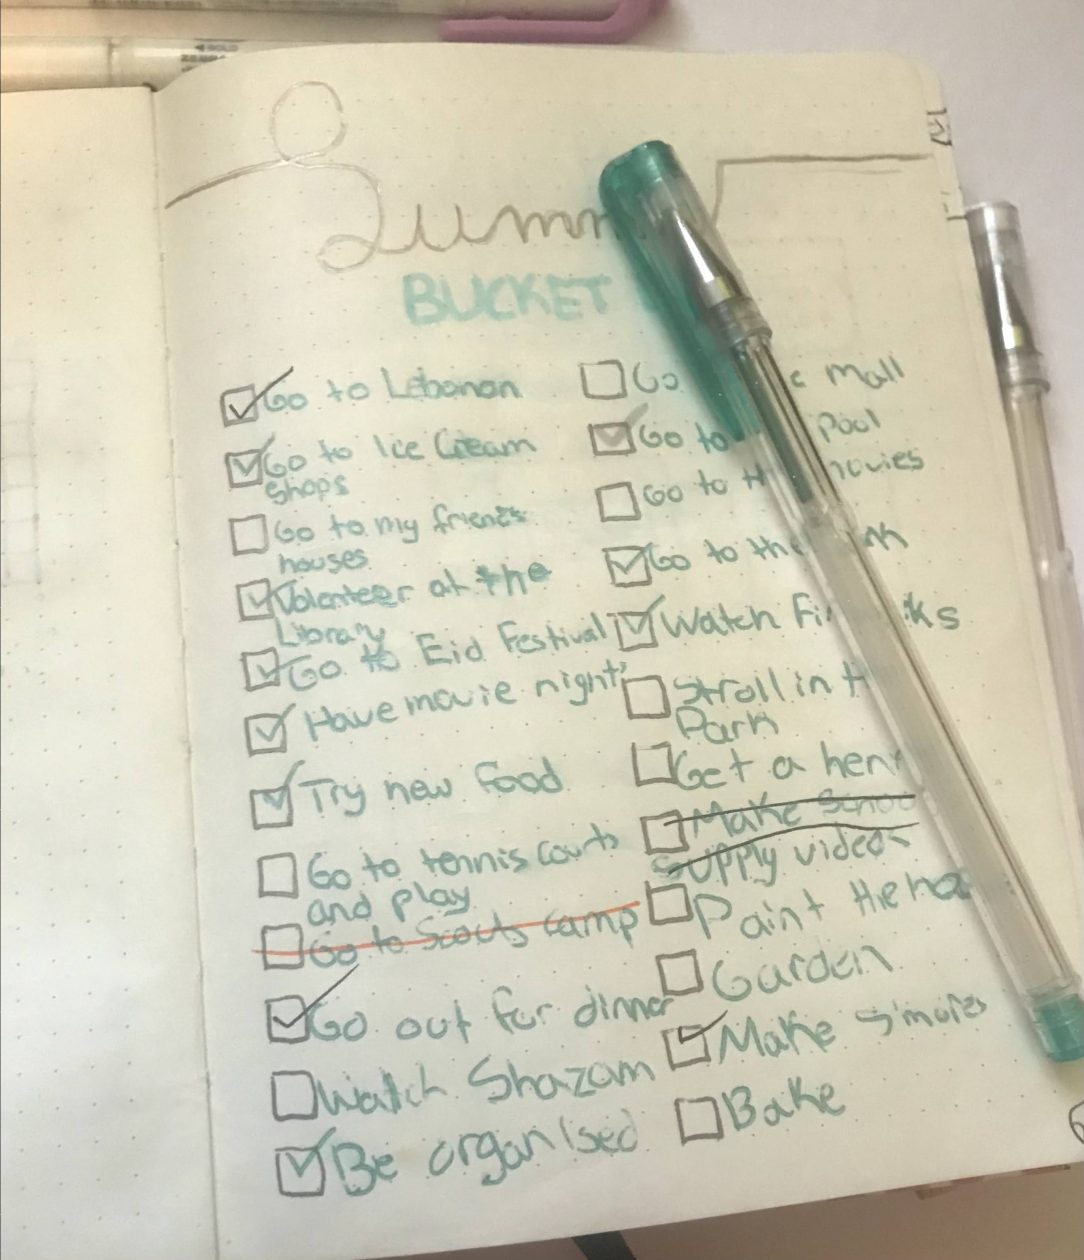 Summ
BUCKET
Go to Lebanon
Go to Ice Cream
Shops
Go to my friends
houses
Volenteer at the
Library
Go to Eid Festival
Have movie night
Try new food
Go to tennis courts
and play
Go to Scouts camp
Go out for dinner
Watch Shazam
Be organised
Go mall
Go to pool
Go to
Go to
Watch
Stroll in
Park
Get a
Make
Supply videos
Paint the
Garden
Make s'mores
Bake